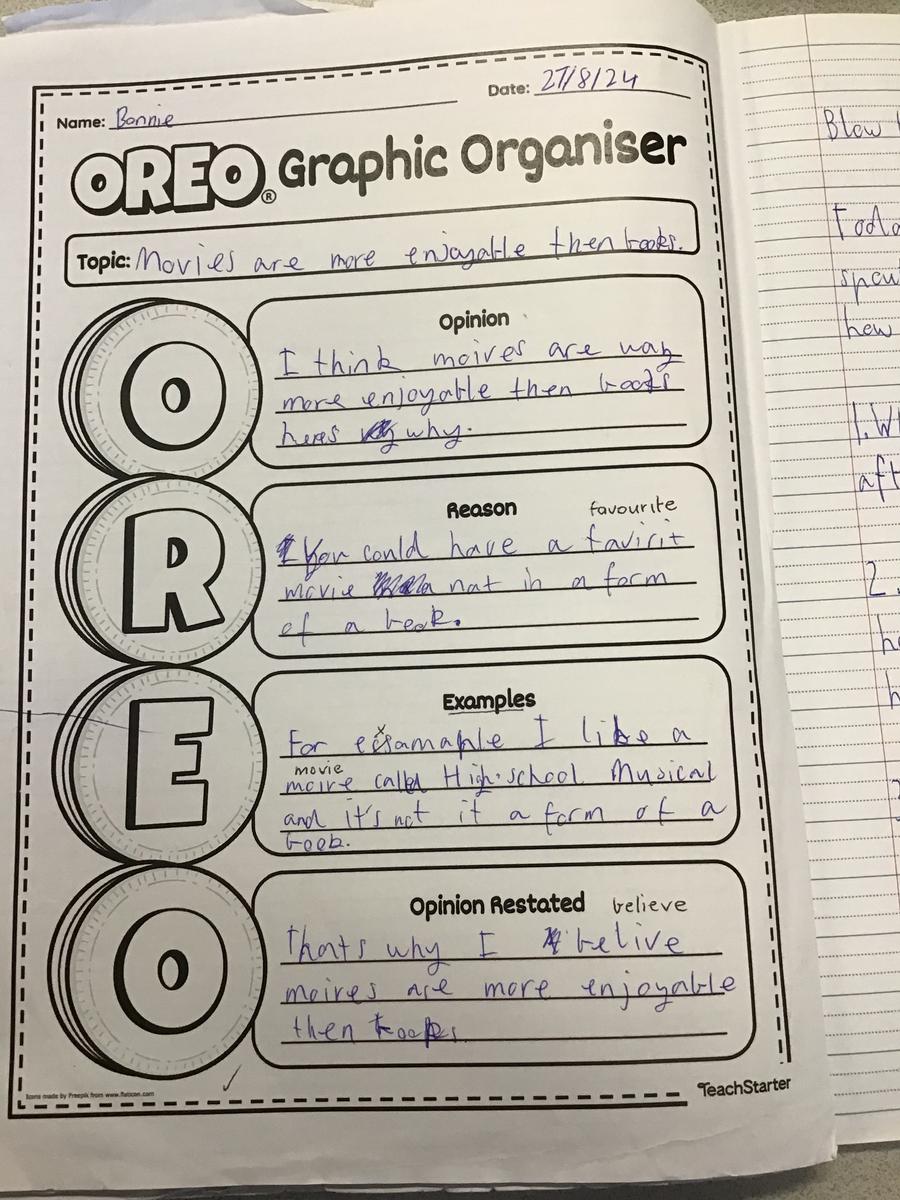 Name: Bonnie
Date: 27/8/24
OREO® Graphic Organiser
Topic: Movies are more enjoyable then books.
O
Opinion
I think moires are way
more enjoyable then books
heres why.
R
Reason
favourite
You could have a favirit
movie not in a form
of a book.
E
Examples
For examaple I like a
movie
moire called High school Musical
and it's not it a form of a
boob.
O
Opinion Restated
believe
thats why I belive
moires are more enjoyable
then books
Icons made by Freepik from www.flaticon.com
TeachStarter
Blow
Toda
spou
hew
1. W
aft
2.
h